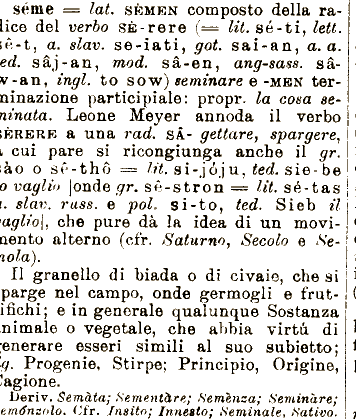 séme = lat. SÈMEN composto della ra-
dice del verbo SÈ-rere (= lit. sé-ti, lett.
sê-t, a. slav. se-iati, got. sai-an, a. a.
ted. sâj-an, mod. sâ-en, ang-sass. sâ-
w-an, ingl. to sow) seminare e -MEN ter-
minazione participiale: propr. la cosa se-
minata. Leone Meyer annoda il verbo
SÈRERE a una rad. SÂ- gettare, spargere,
a cui pare si ricongiunga anche il gr.
sào o sê-thô = lit. si-jóju, ted. sie-be
io vaglio [onde gr. sê-stron = lit. sé-tas
a. slav. russ. e pol. si-to, ted. Sieb il
vaglio], che pure dà la idea di un movi-
mento alterno (cfr. Saturno, Secolo e Se-
mola).
Il granello di biada o di civaie, che si
sparge nel campo, onde germogli e frut-
tifichi; e in generale qualunque Sostanza
animale o vegetale, che abbia virtú di
generare esseri simili al suo subietto;
fig. Progenie, Stirpe; Principio, Origine,
Cagione.
Deriv. Semàta; Sementàre; Semènza; Seminàre;
Semónzolo. Cfr. Insito; Innesto; Seminale, Sativo.